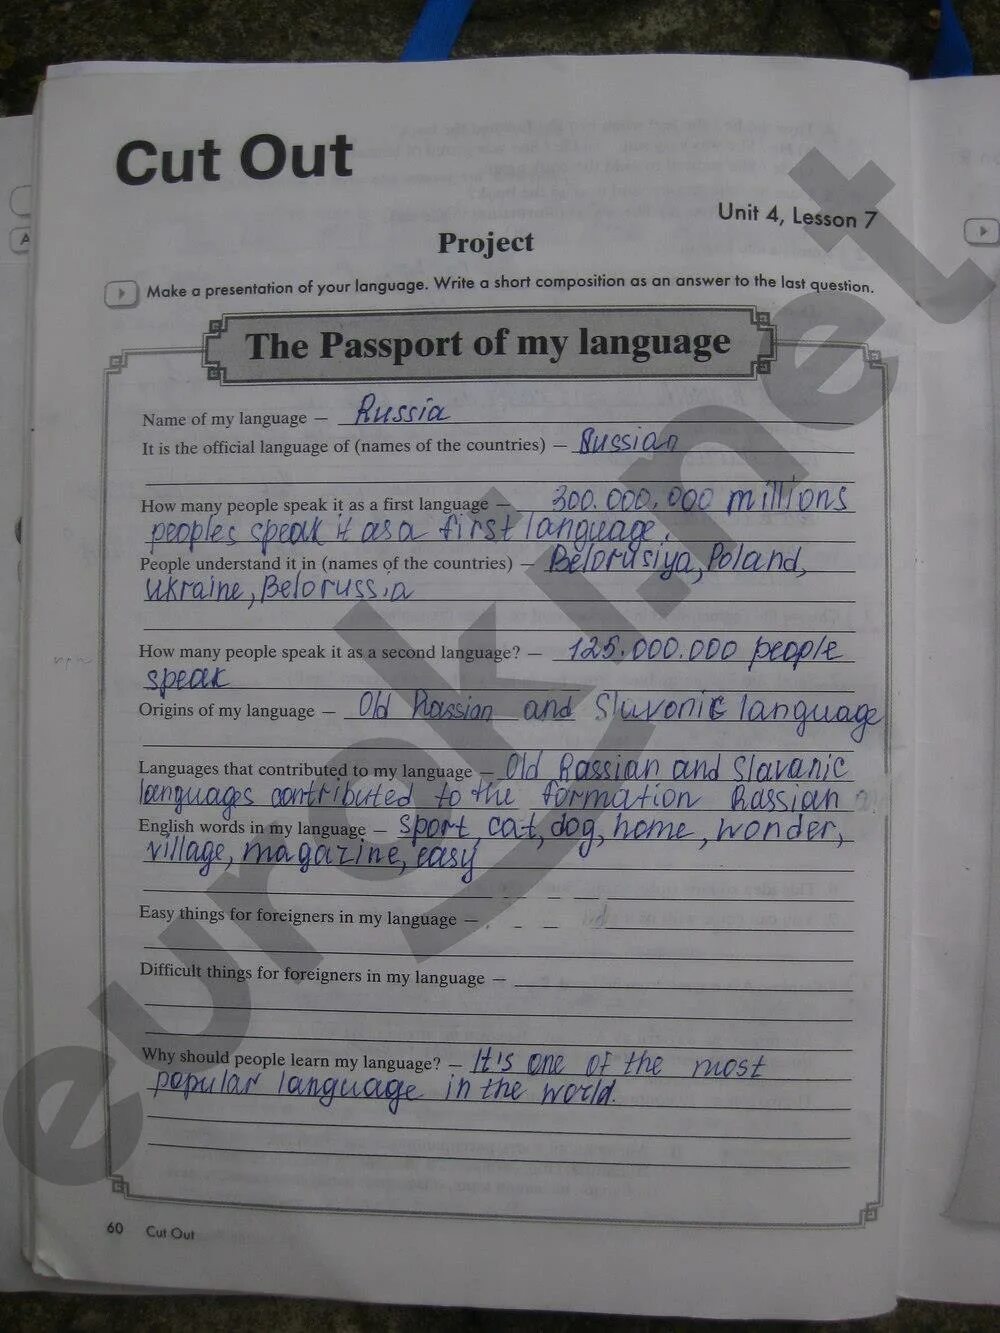 Cut Out
Unit 4, Lesson 7
Project
Make a presentation of your language. Write a short composition as an answer to the last question.
The Passport of my language
Name of my language — Russia
It is the official language of (names of the countries) — Russian
How many people speak it as a first language — 300.000.000 millions
peoples speak it as a first language.
People understand it in (names of the countries) — Belorusiya, Poland,
Ukraine, Belorussia
How many people speak it as a second language? — 125.000.000 people
speak
Origins of my language — Old Rassian and Slavonic language
Languages that contributed to my language — Old Rassian and Slavanic
languages contributed to the formation Rassian
English words in my language — sport, cat, dog, home, wonder,
village, magazine, easy
Easy things for foreigners in my language —
Difficult things for foreigners in my language —
Why should people learn my language? — It's one of the most
popular language in the world.
60 Cut Out
euroki.net